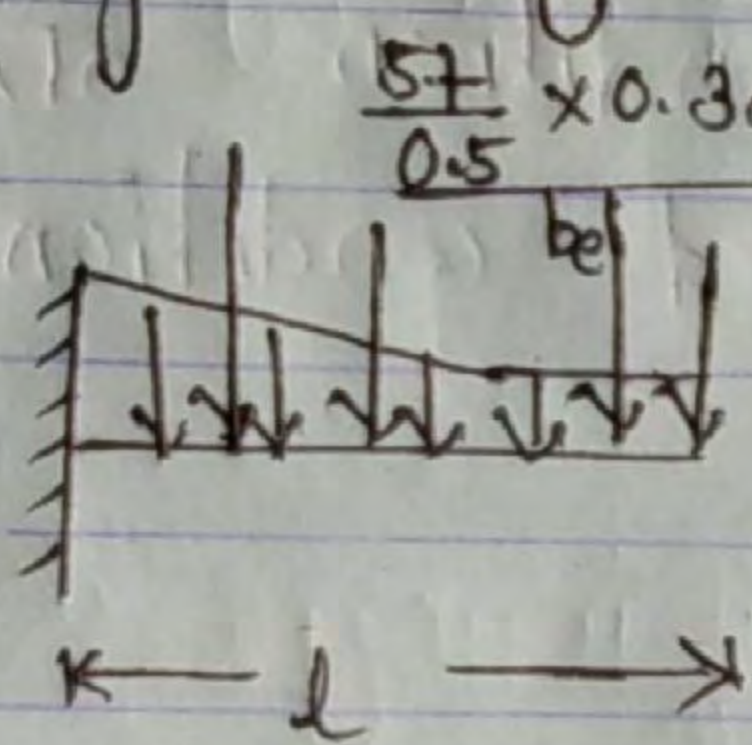 57
0.5 × 0.3
be
l